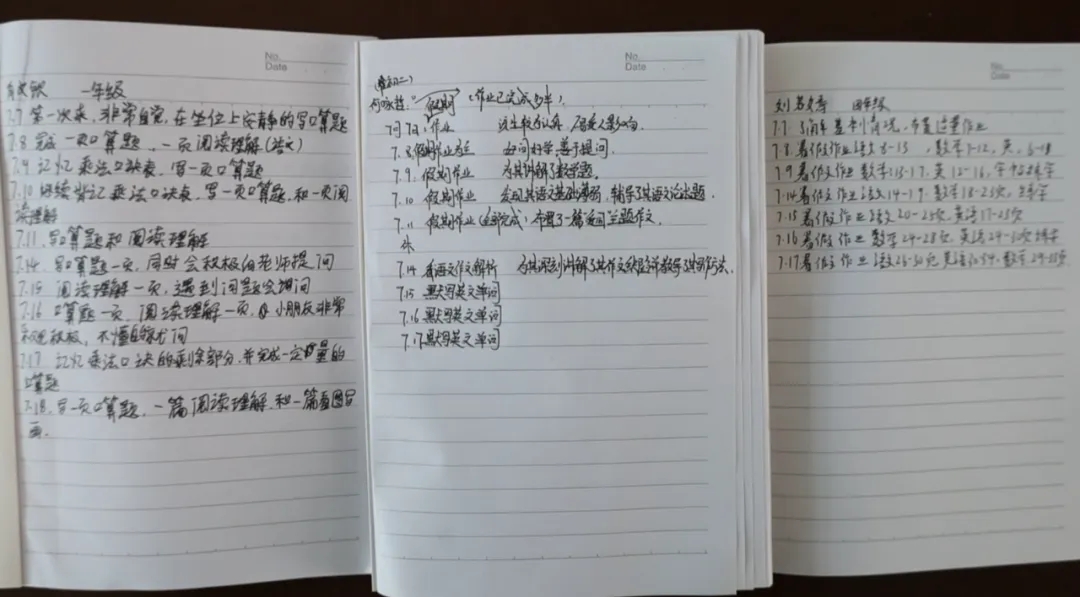 No.
Date
一年级
7.7 第一次来,非常自觉,在坐位上安静的写口算题
7.8 完成一页口算题,一页阅读理解(语文)
7.9 记忆乘法口诀表,写一页口算题
7.10 继续背记乘法口诀表,写一页口算题,和一页阅
读理解
7.11 写口算题和阅读理解
7.14 写口算题一页,同时会积极向老师提问
7.15 阅读理解一页,遇到问题会询问
7.16 口算题一页,阅读理解一页,小朋友非常
积极,不懂的就问
7.17 记忆乘法口诀的剩余部分,并完成一定量的
口算题
7.18 写一页口算题,一篇阅读理解和一篇看图写
画.
No.
Date
(作业已完成多半)
假期
作业
7.8 假期作业 如问好学,善于提问.
7.9 假期作业 为其讲解了数学题.
7.10 假期作业 发现其语文基础薄弱,辅导了其语文
7.11 假期作业(全部完成),布置了一篇 主题作文.
7.14 语文作文解析
7.15 默写英文单词
7.16 默写英文单词
7.17 默写英文单词
No.
Date
刘 四年级
7.7 基本情况,布置这里作业
7.8 暑假作业 语文8-13,数学7-12,英,6-18
7.9 暑假作业 数学13-17,英12-16,
7.14 暑假作业 语文14-19,数学18-23页,
7.15 暑假作业 语文20-25页,英语17-23页
7.16 暑假作业 数学24-28页,英语24-30页
7.17 暑假作业 语文26-30页